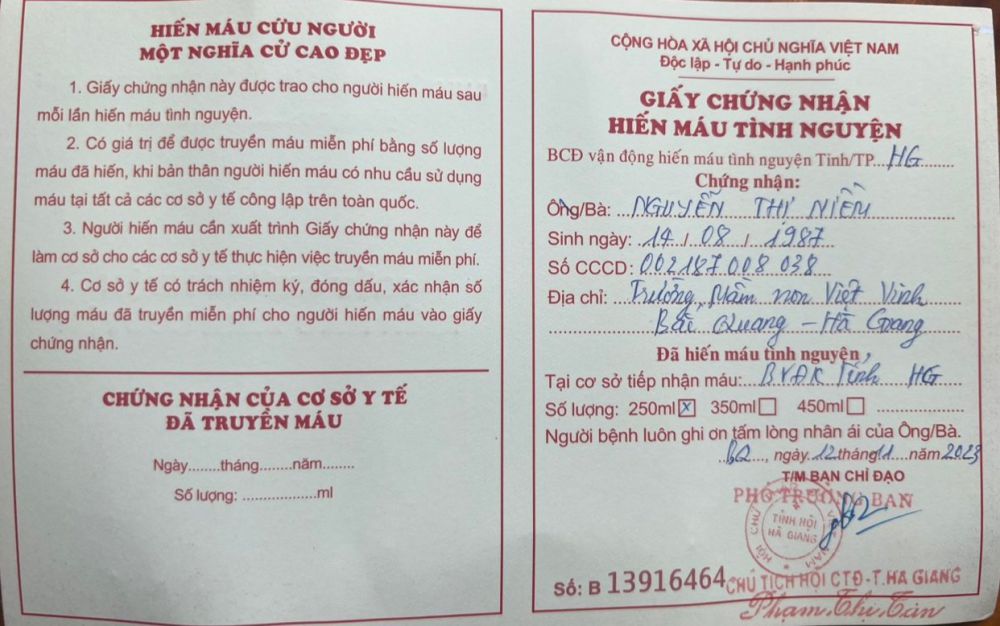 HIẾN MÁU CỨU NGƯỜI
MỘT NGHĨA CỬ CAO ĐẸP
1. Giấy chứng nhận này được trao cho người hiến máu sau
mỗi lần hiến máu tình nguyện.
2. Có giá trị để được truyền máu miễn phí bằng số lượng
máu đã hiến, khi bản thân người hiến máu có nhu cầu sử dụng
máu tại tất cả các cơ sở y tế công lập trên toàn quốc.
3. Người hiến máu cần xuất trình Giấy chứng nhận này để
làm cơ sở cho các cơ sở y tế thực hiện việc truyền máu miễn phí.
4. Cơ sở y tế có trách nhiệm ký, đóng dấu, xác nhận số
lượng máu đã truyền miễn phí cho người hiến máu vào giấy
chứng nhận.
CHỨNG NHẬN CỦA CƠ SỞ Y TẾ
ĐÃ TRUYỀN MÁU
Ngày........tháng........năm........
Số lượng: ..................ml
CỘNG HÒA XÃ HỘI CHỦ NGHĨA VIỆT NAM
Độc lập - Tự do - Hạnh phúc
GIẤY CHỨNG NHẬN
HIẾN MÁU TÌNH NGUYỆN
BCĐ vận động hiến máu tình nguyện Tỉnh/TP...HG
Chứng nhận:
Ông/Bà: NGUYỄN THỊ NIỀM
Sinh ngày: 14 / 08 / 1987
Số CCCD: 002187008038
Địa chỉ: Trường Mầm non Việt Vinh
Bắc Quang - Hà Giang
Đã hiến máu tình nguyện
Tại cơ sở tiếp nhận máu: BVĐK Tỉnh HG
Số lượng: 250ml ☒ 350ml ☐ 450ml ☐
Người bệnh luôn ghi ơn tấm lòng nhân ái của Ông/Bà.
BQ, ngày 12 tháng 11 năm 2023
T/M BAN CHỈ ĐẠO
PHÓ TRƯỞNG BAN
TỈNH HỘI
HÀ GIANG
Số: B 13916464
CHỦ TỊCH HỘI CTĐ-T.HÀ GIANG
Phạm Thị Tân